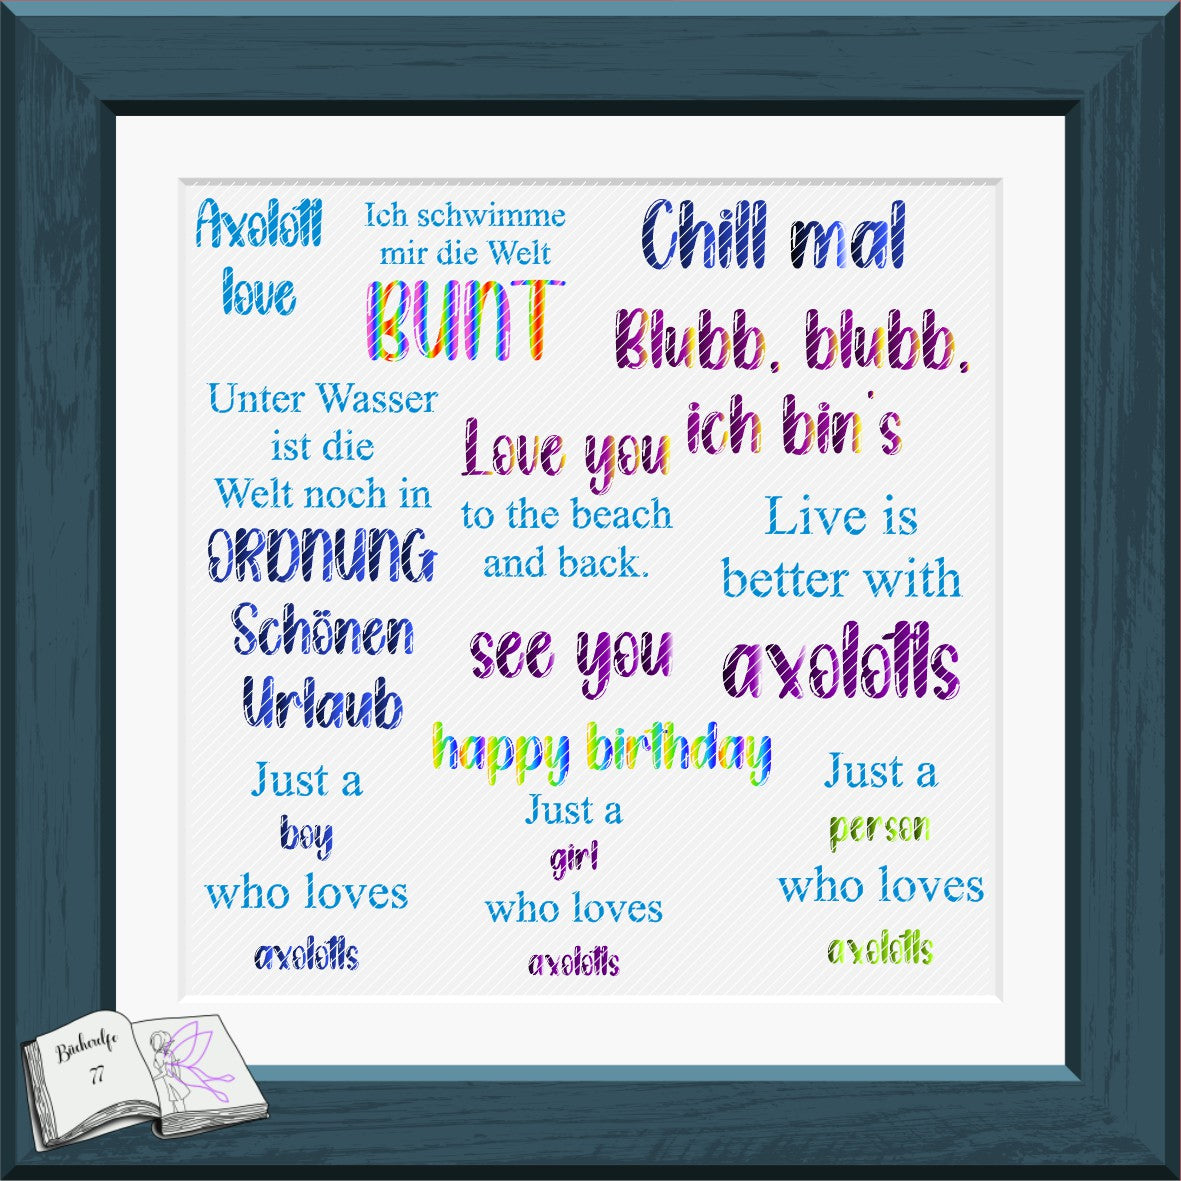 Axolotl
love
Ich schwimme
mir die Welt
BUNT
Chill mal
Blubb, blubb,
ich bin's
Unter Wasser
ist die
Welt noch in
ORDNUNG
Love you
to the beach
and back.
Live is
better with
axolotls
Schönen
Urlaub
see you
happy birthday
Just a
boy
who loves
axolotls
Just a
girl
who loves
axolotls
Just a
person
who loves
axolotls
Bücherelfe
77